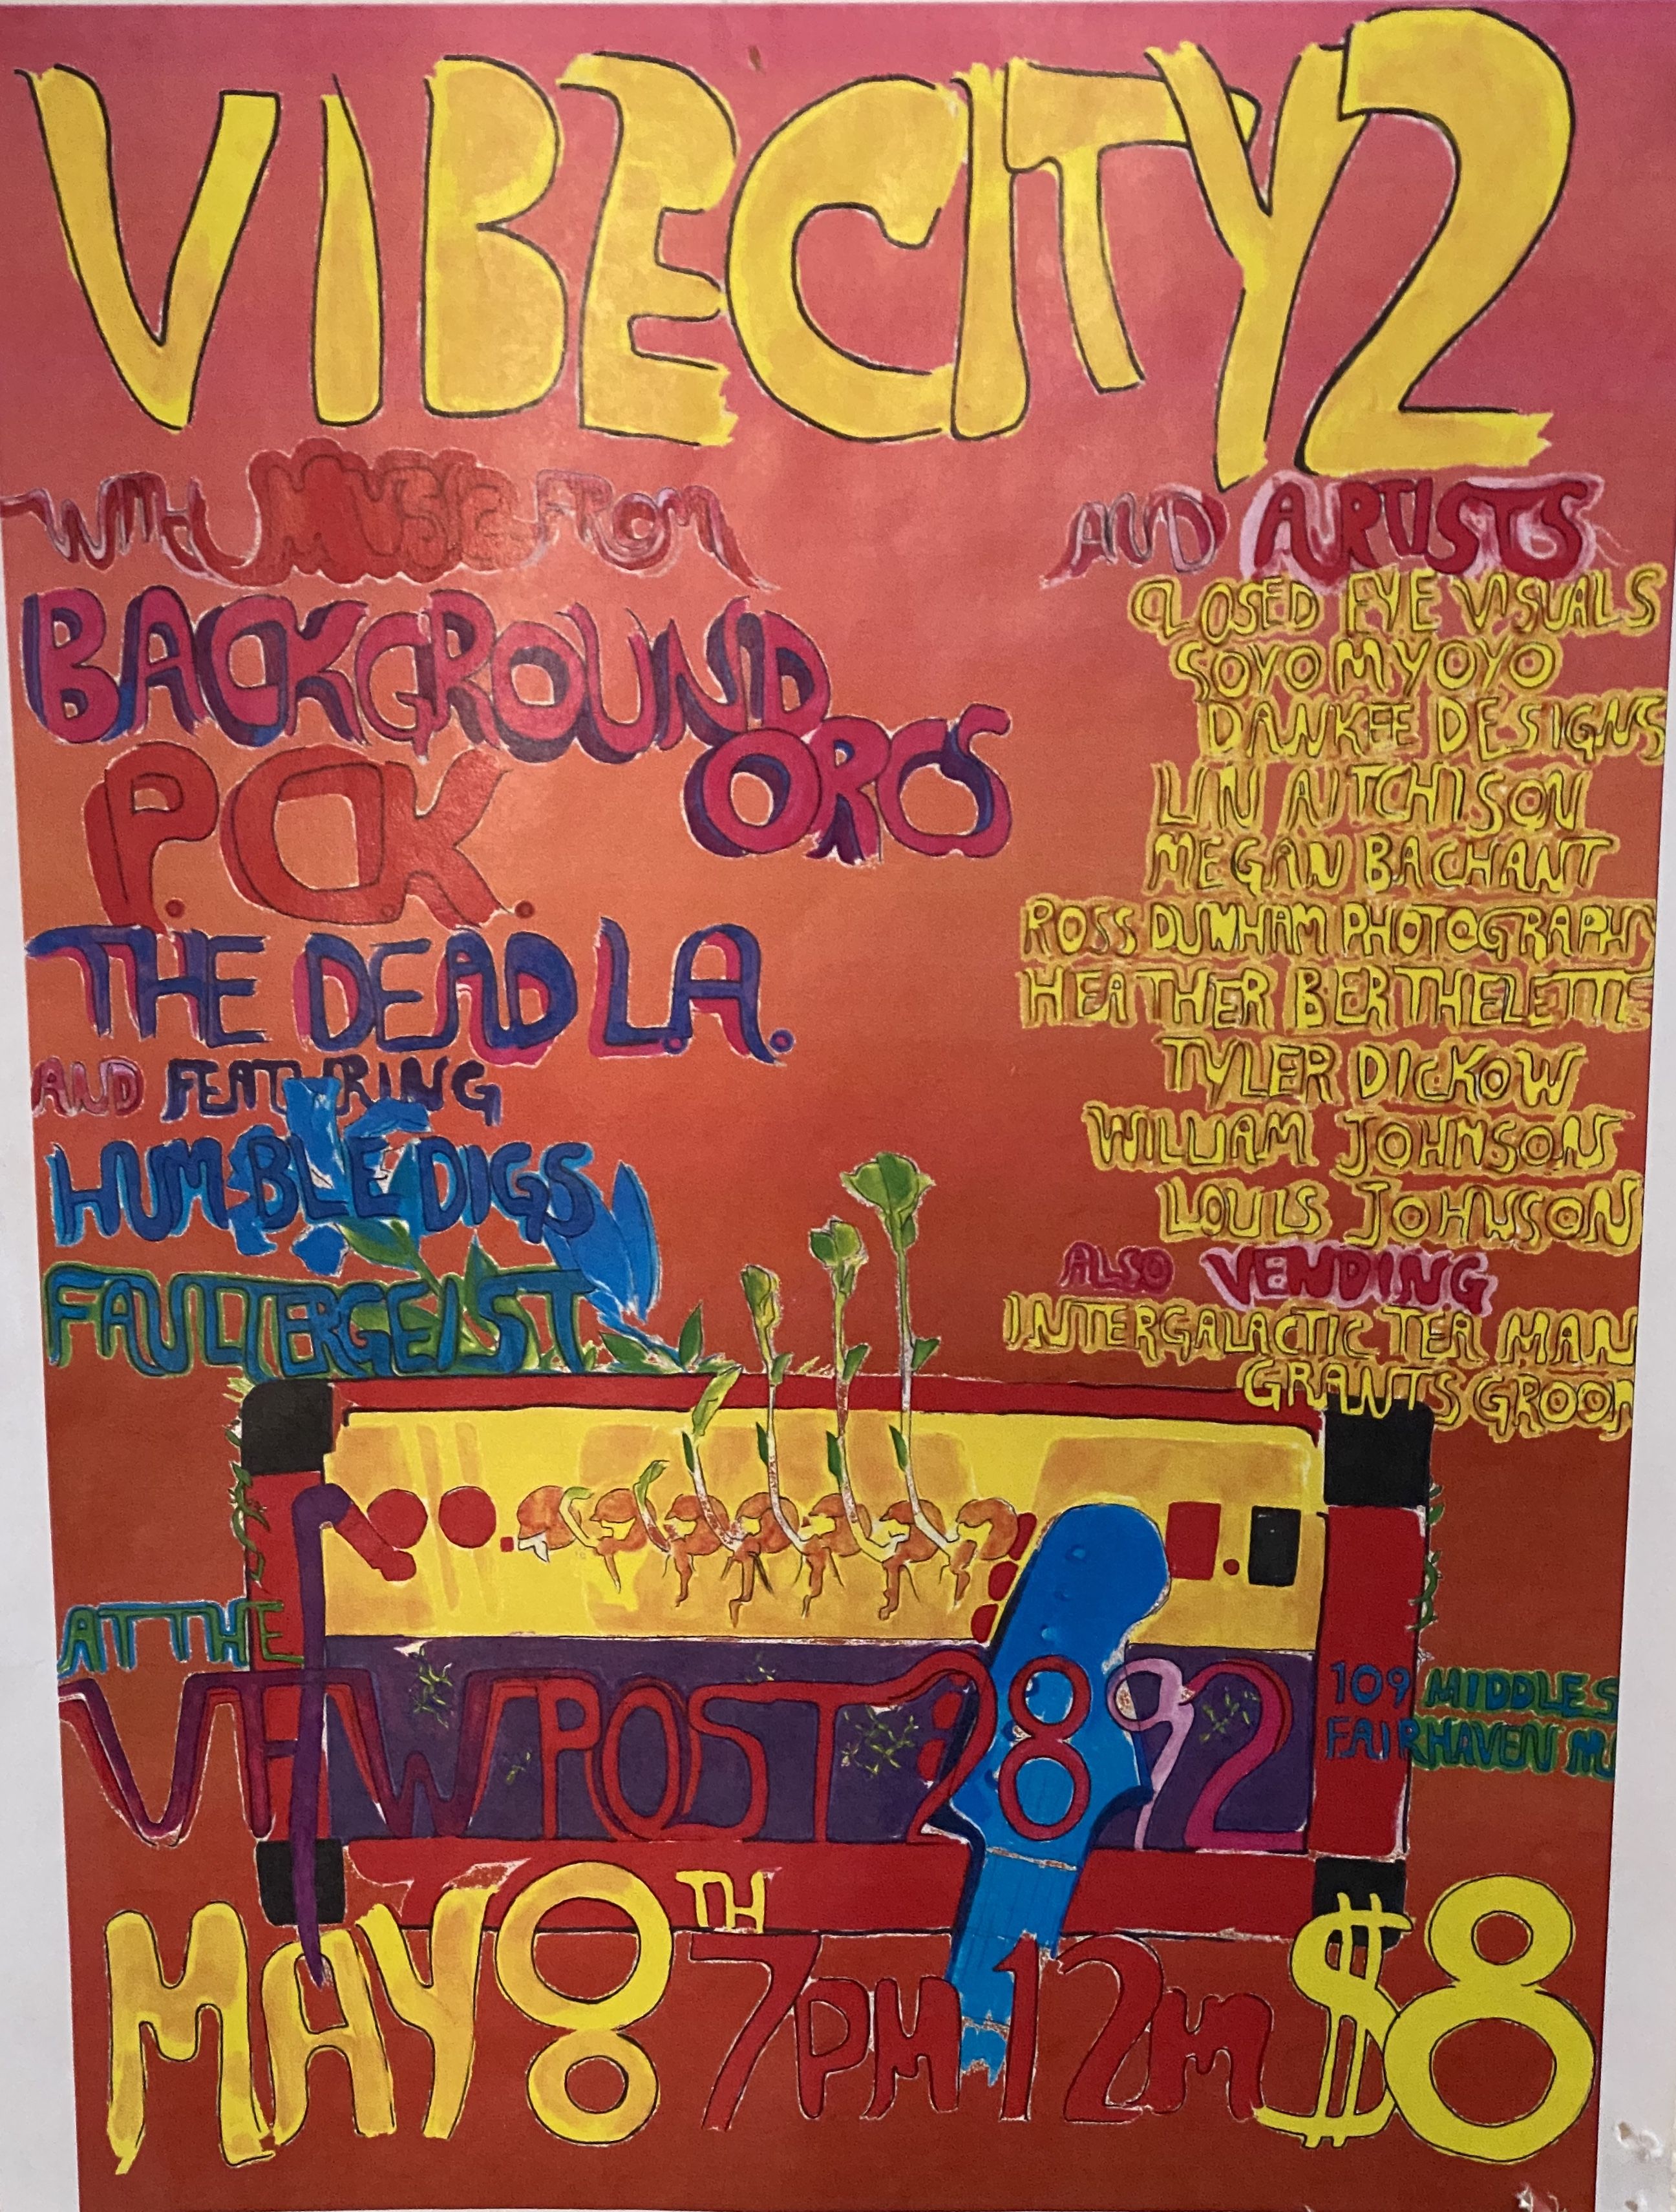 VIBECITY2
WITH MUSIC FROM
BACKGROUND
ORCS
P.O.K.
THE DEAD L.A.
AND FEATURING
HUMBLE DIGS
FAULTERGEIST
AND ARTISTS
CLOSED EYE VISUALS
SOYO MYOYO
DANKEE DESIGNS
LIN AITCHISON
MEGAN BACHANT
ROSS DUNHAM PHOTOGRAPHY
HEATHER BERTHELETTE
TYLER DICKOW
WILLIAM JOHNSON
LOUIS JOHNSON
ALSO VENDING
INTERGALACTIC TEA MAN
GRANTS GROOV
AT THE
VFW POST 2892
109 MIDDLE S
FAIRHAVEN MA
MAY 8TH 7PM 12M $8